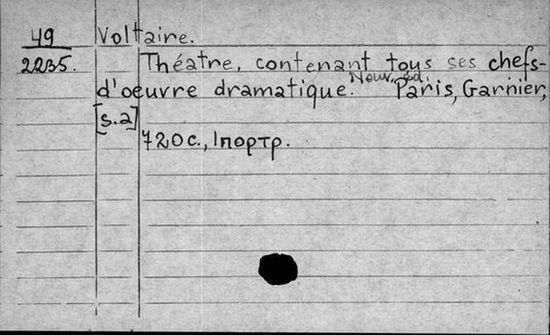 49 Voltaire.
2235. Théatre, contenant tous ses chefs-
Nouv. éd.
d'oeuvre dramatique. Paris, Garnier,
[s.a]
720с., 1портр.